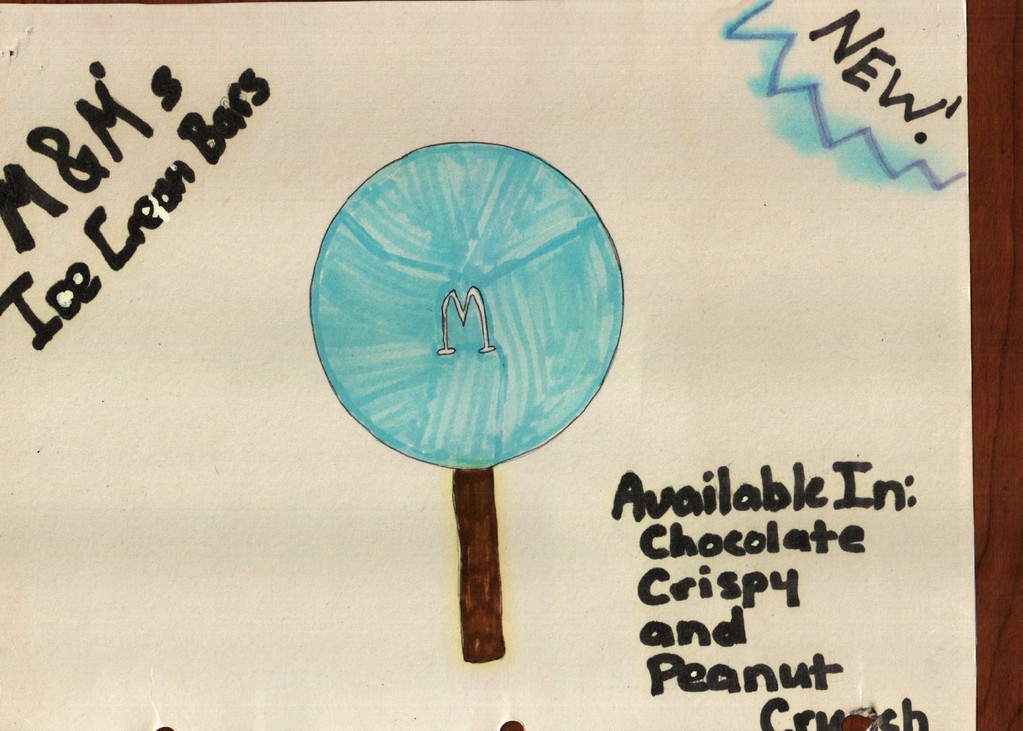 M&M's
Ice Cream Bars
NEW!
M
Available In:
Chocolate
Crispy
and
Peanut
Crunch